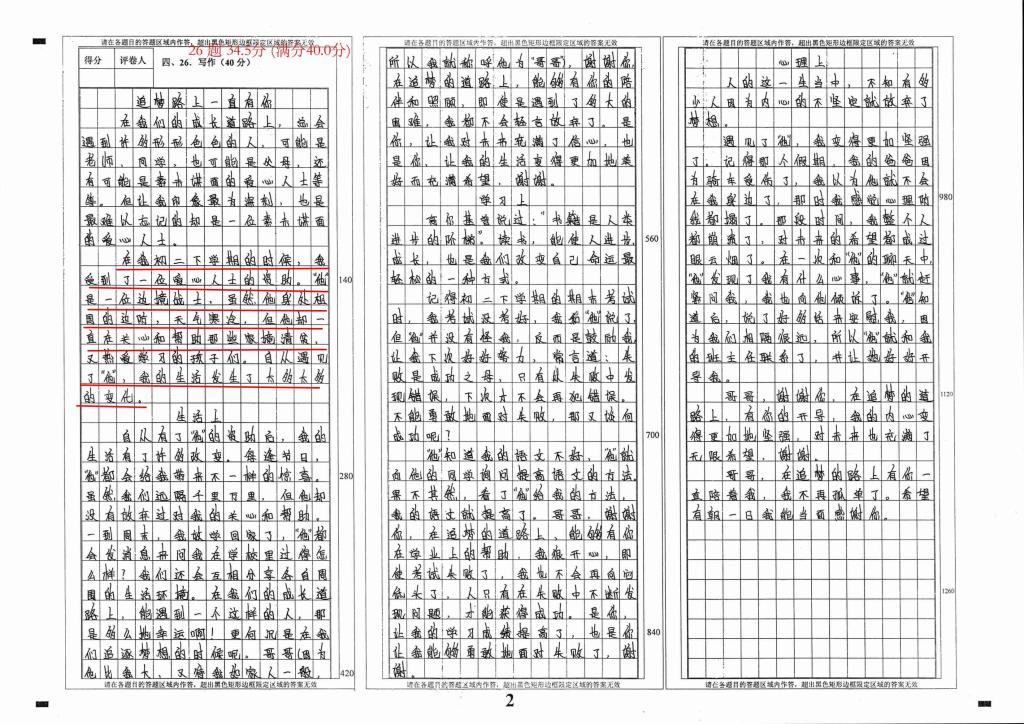 请在各题目的答题区域内作答，超出黑色矩形边框限定区域的答案无效
26 题 34.5分 (满分40.0分)
得分 评卷人 四、26. 写作（40 分）
追梦路上一直有你
在我们的成长道路上，总会
遇到许多形形色色的人，可能是
老师，同学，也可能是父母，还
有可能是素未谋面的爱心人士等
等。但让我印象最为深刻，也是
最难以忘记的却是一位素未谋面
的爱心人士。
在我初二下学期的时候，我
受到了一位爱心人士的资助。“他”
是一位边境战士，虽然他身处祖
国的边防，天气寒冷，但他却一
直在关心和帮助那些家境清贫，
又热爱学习的孩子们。自从遇见
了“他”，我的生活发生了太多太多
的变化。
140
生活上
自从有了“他”的资助后，我的
生活有了许多改变。每逢节日，
“他”都会给我带来不一样的惊喜。
虽然我们远隔千里万里，但他却
没有放弃过对我的关心和帮助。
一到周末，我放学回家了，“他”都
会发消息来问我在学校里过得怎
么样？我们还会互相分享各自周
围的生活环境。在我们的成长道
路上，能遇到一个这样的人，那
是多么地幸运啊！更何况是在我
们追逐梦想的时候呢。哥哥（因为
他比我大，又待我如家人一般，
280
420
请在各题目的答题区域内作答，超出黑色矩形边框限定区域的答案无效
请在各题目的答题区域内作答，超出黑色矩形边框限定区域的答案无效
所以我就称呼他为“哥哥”），谢谢你，
在追梦的道路上，能够有你的陪
伴和照顾，即使是遇到了多大的
困难，我都不会轻言放弃了。是
你，让我对未来充满了信心，也
是你，让我的生活变得更加地美
好而充满希望，谢谢。
学习上
高尔基曾说过：“书籍是人类
进步的阶梯”。读书，能使人进步，
成长，也是我们改变自己命运最
轻松的一种方式。
560
记得初二下学期的期末考试
时，我考试没考好，我给“他”说了，
但“他”并没有怪我，反而是鼓励我，
让我下次好好努力，常言道：失
败是成功之母，只有从失败中发
现错误，下次才不会再犯错误。
不能勇敢地面对失败，那又谈何
成功呢？
700
“他”知道我的语文不好，“他”就
向他的同学询问提高语文的方法。
果不其然，看了“他”给我的方法，
我的语文就提高了。哥哥，谢谢
你，在追梦的道路上，能够有你
在学业上的帮助，我很开心，即
使考试失败了，我也不会再向它
低头了，人只有在失败中不断发
现问题，才能获得成功。是你，
让我的学习成绩提高了，也是你
让我能够勇敢地面对失败了，谢
谢。
840
请在各题目的答题区域内作答，超出黑色矩形边框限定区域的答案无效
请在各题目的答题区域内作答，超出黑色矩形边框限定区域的答案无效
心理上
人的这一生当中，不知有多
少人因为内心的不坚定就放弃了
梦想。
遇见了“他”，我变得更加坚强
了。记得那个假期，我的爸爸因
为骑车受伤了，我以为他就不会
在我身边了，那时我感觉心理防线
我都塌了。那段时间，我整个人
都崩溃了，对未来的希望都成过
眼云烟了。在一次和“他”的聊天中，
“他”发现了我有什么心事，“他”就赶
紧问我，我也向他倾诉了。“他”知
道后，说了好多话来安慰我，因
为我们相隔很远，所以“他”就和我
的班主任联系了，并让她好好开
导我。
980
哥哥，谢谢你，在追梦的道
路上，有你的开导，我的内心变
得更加地坚强，对未来也充满了
无限希望，谢谢。
1120
哥哥，在追梦的路上有你一
直陪着我，我不再孤单了。希望
有朝一日我能当面感谢你。
1260
请在各题目的答题区域内作答，超出黑色矩形边框限定区域的答案无效
2